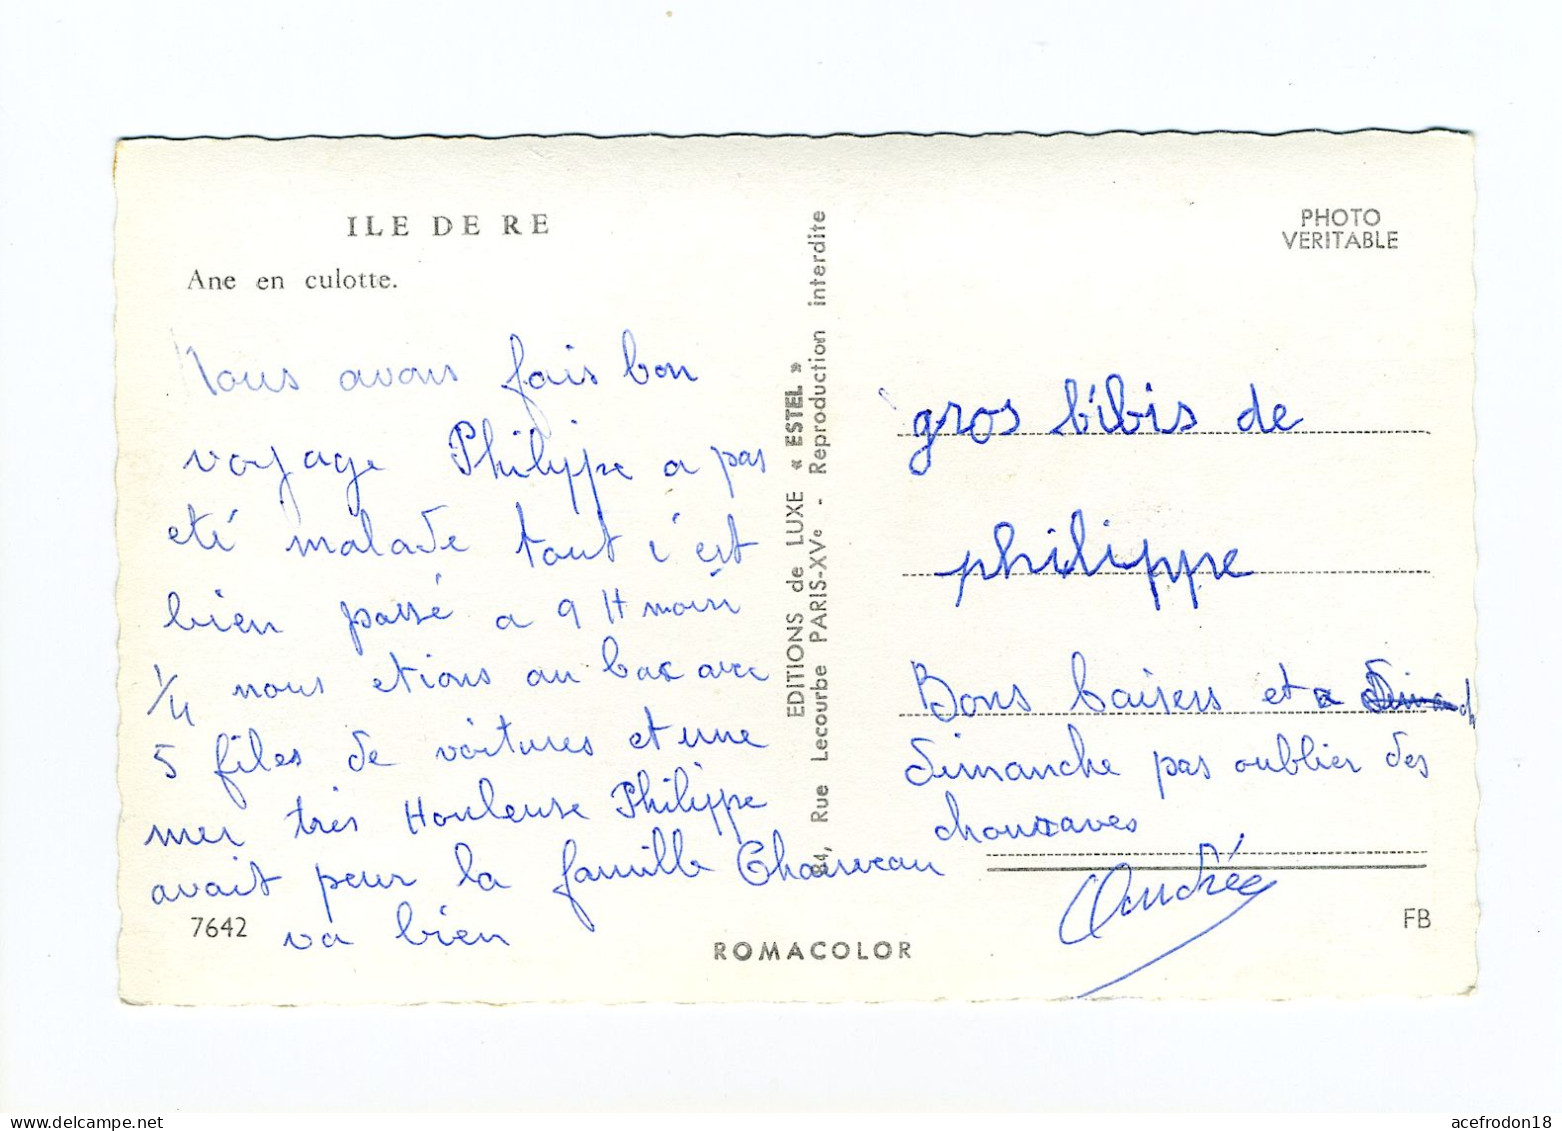 ILE DE RE
Ane en culotte.
Nous avons fais bon
voyage Philippe a pas
eté malade tout c'est
bien passé a 9 H moin
1/4 nous etions au bac avec
5 files de voitures et une
mer très Houleuse Philippe
avait peur la famille Chauveau
va bien
7642
EDITIONS de LUXE « ESTEL »
84, Rue Lecourbe PARIS-XVe - Reproduction interdite
ROMACOLOR
PHOTO
VERITABLE
gros bibis de
philippe
Bons baisers et a
dimanche pas oublier des
Andrée
FB
acefrodon18